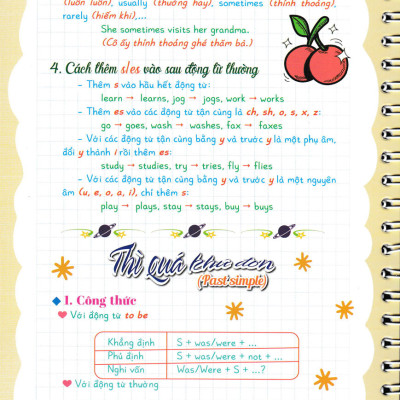 (luôn luôn), usually (thường hay), sometimes (thỉnh thoảng),
rarely (hiếm khi),...
She sometimes visits her grandma.
(Cô ấy thỉnh thoảng ghé thăm bà.)
4. Cách thêm s/es vào sau động từ thường
- Thêm s vào hầu hết động từ:
learn → learns, jog → jogs, work → works
- Thêm es vào các động từ tận cùng là ch, sh, o, s, x, z:
go → goes, wash → washes, fax → faxes
- Với các động từ tận cùng bằng y và trước y là một phụ âm,
đổi y thành i rồi thêm es:
study → studies, try → tries, fly → flies
- Với các động từ tận cùng bằng y và trước y là một nguyên
âm (u, e, o, a, i), chỉ thêm s:
play → plays, stay → stays, buy → buys
Thì quá khứ đơn
(Past simple)
1. Công thức
Với động từ to be
Khẳng định S + was/were + ...
Phủ định S + was/were + not + ...
Nghi vấn Was/Were + S + ...?
Với động từ thường